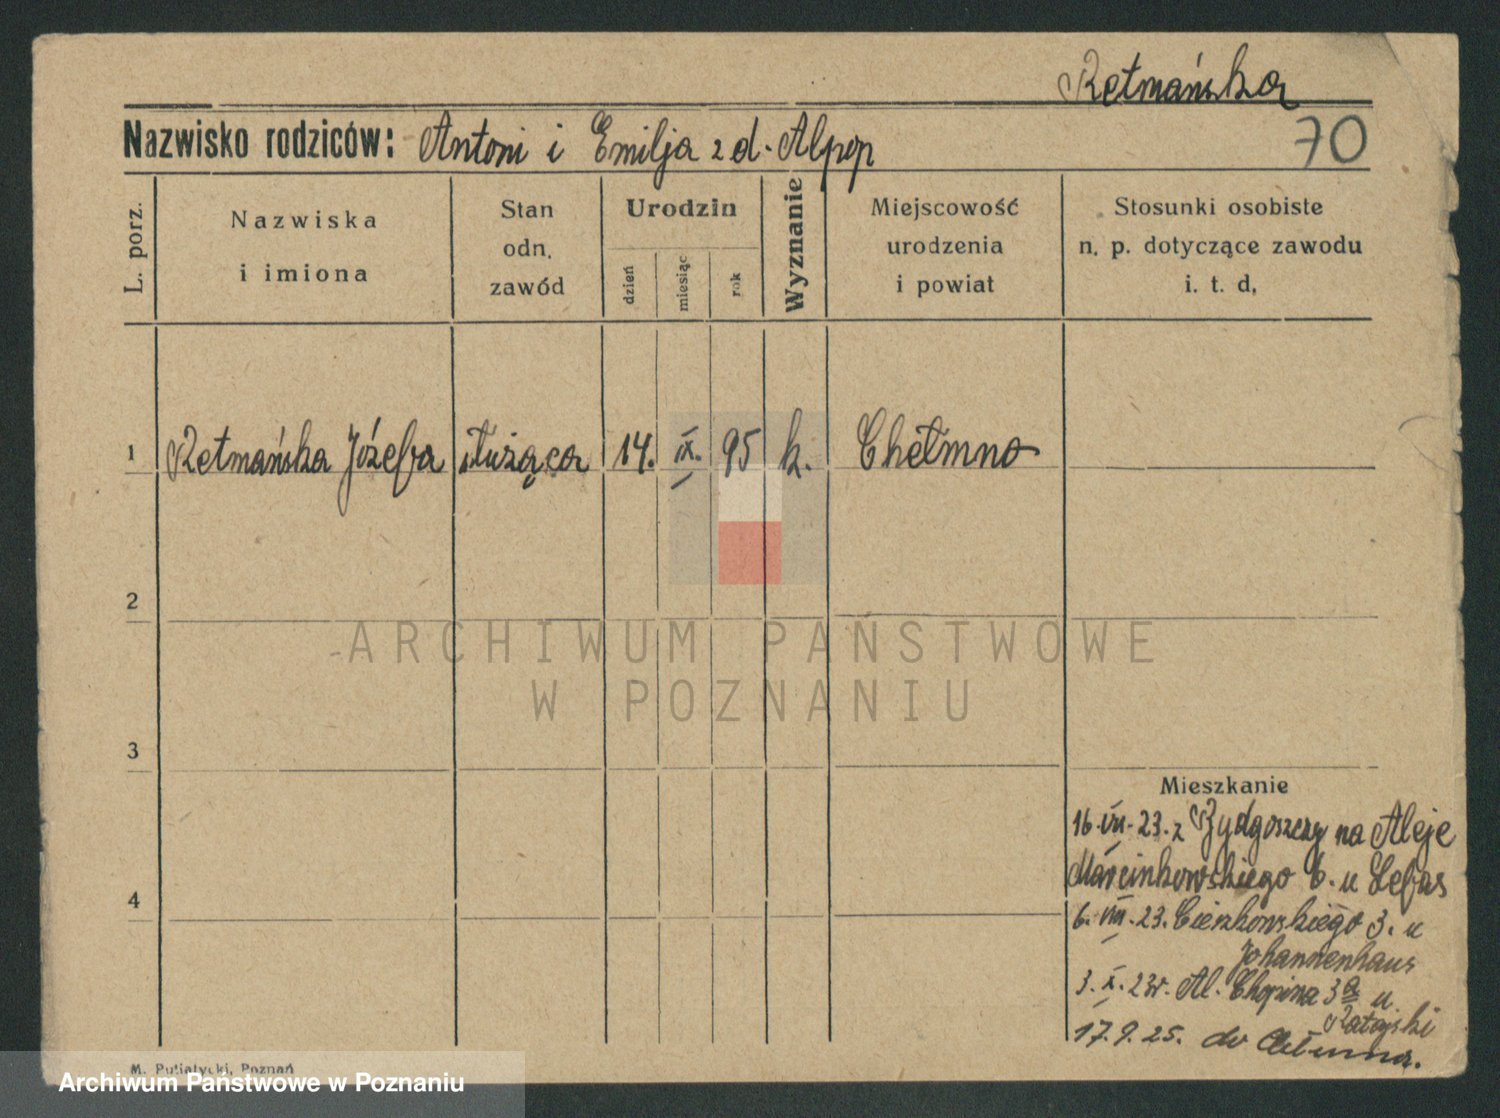 Retmańska
Nazwisko rodziców: Antoni i Emilja z d. Alpop
70
L. porz.
Nazwiska
i imiona
Stan
odn.
zawód
Urodzin
dzień
miesiąc
rok
Wyznanie
Miejscowość
urodzenia
i powiat
Stosunki osobiste
n. p. dotyczące zawodu
i. t. d.
1 Retmańska Józefa służąca 14. IX. 95 k. Chełmno
2
ARCHIWUM PAŃSTWOWE
W POZNANIU
3
Mieszkanie
16. VII. 23. z Bydgoszczy na Aleje
Marcinkowskiego 6. u Lefas
4
6. VIII. 23. Cieszkowskiego 3. u
Johannenhaus
3. X. 23r. Al. Chopina 3a u
Ratajski
17.9.25. do Chełmna.
M. Putiatycki, Poznań
Archiwum Państwowe w Poznaniu